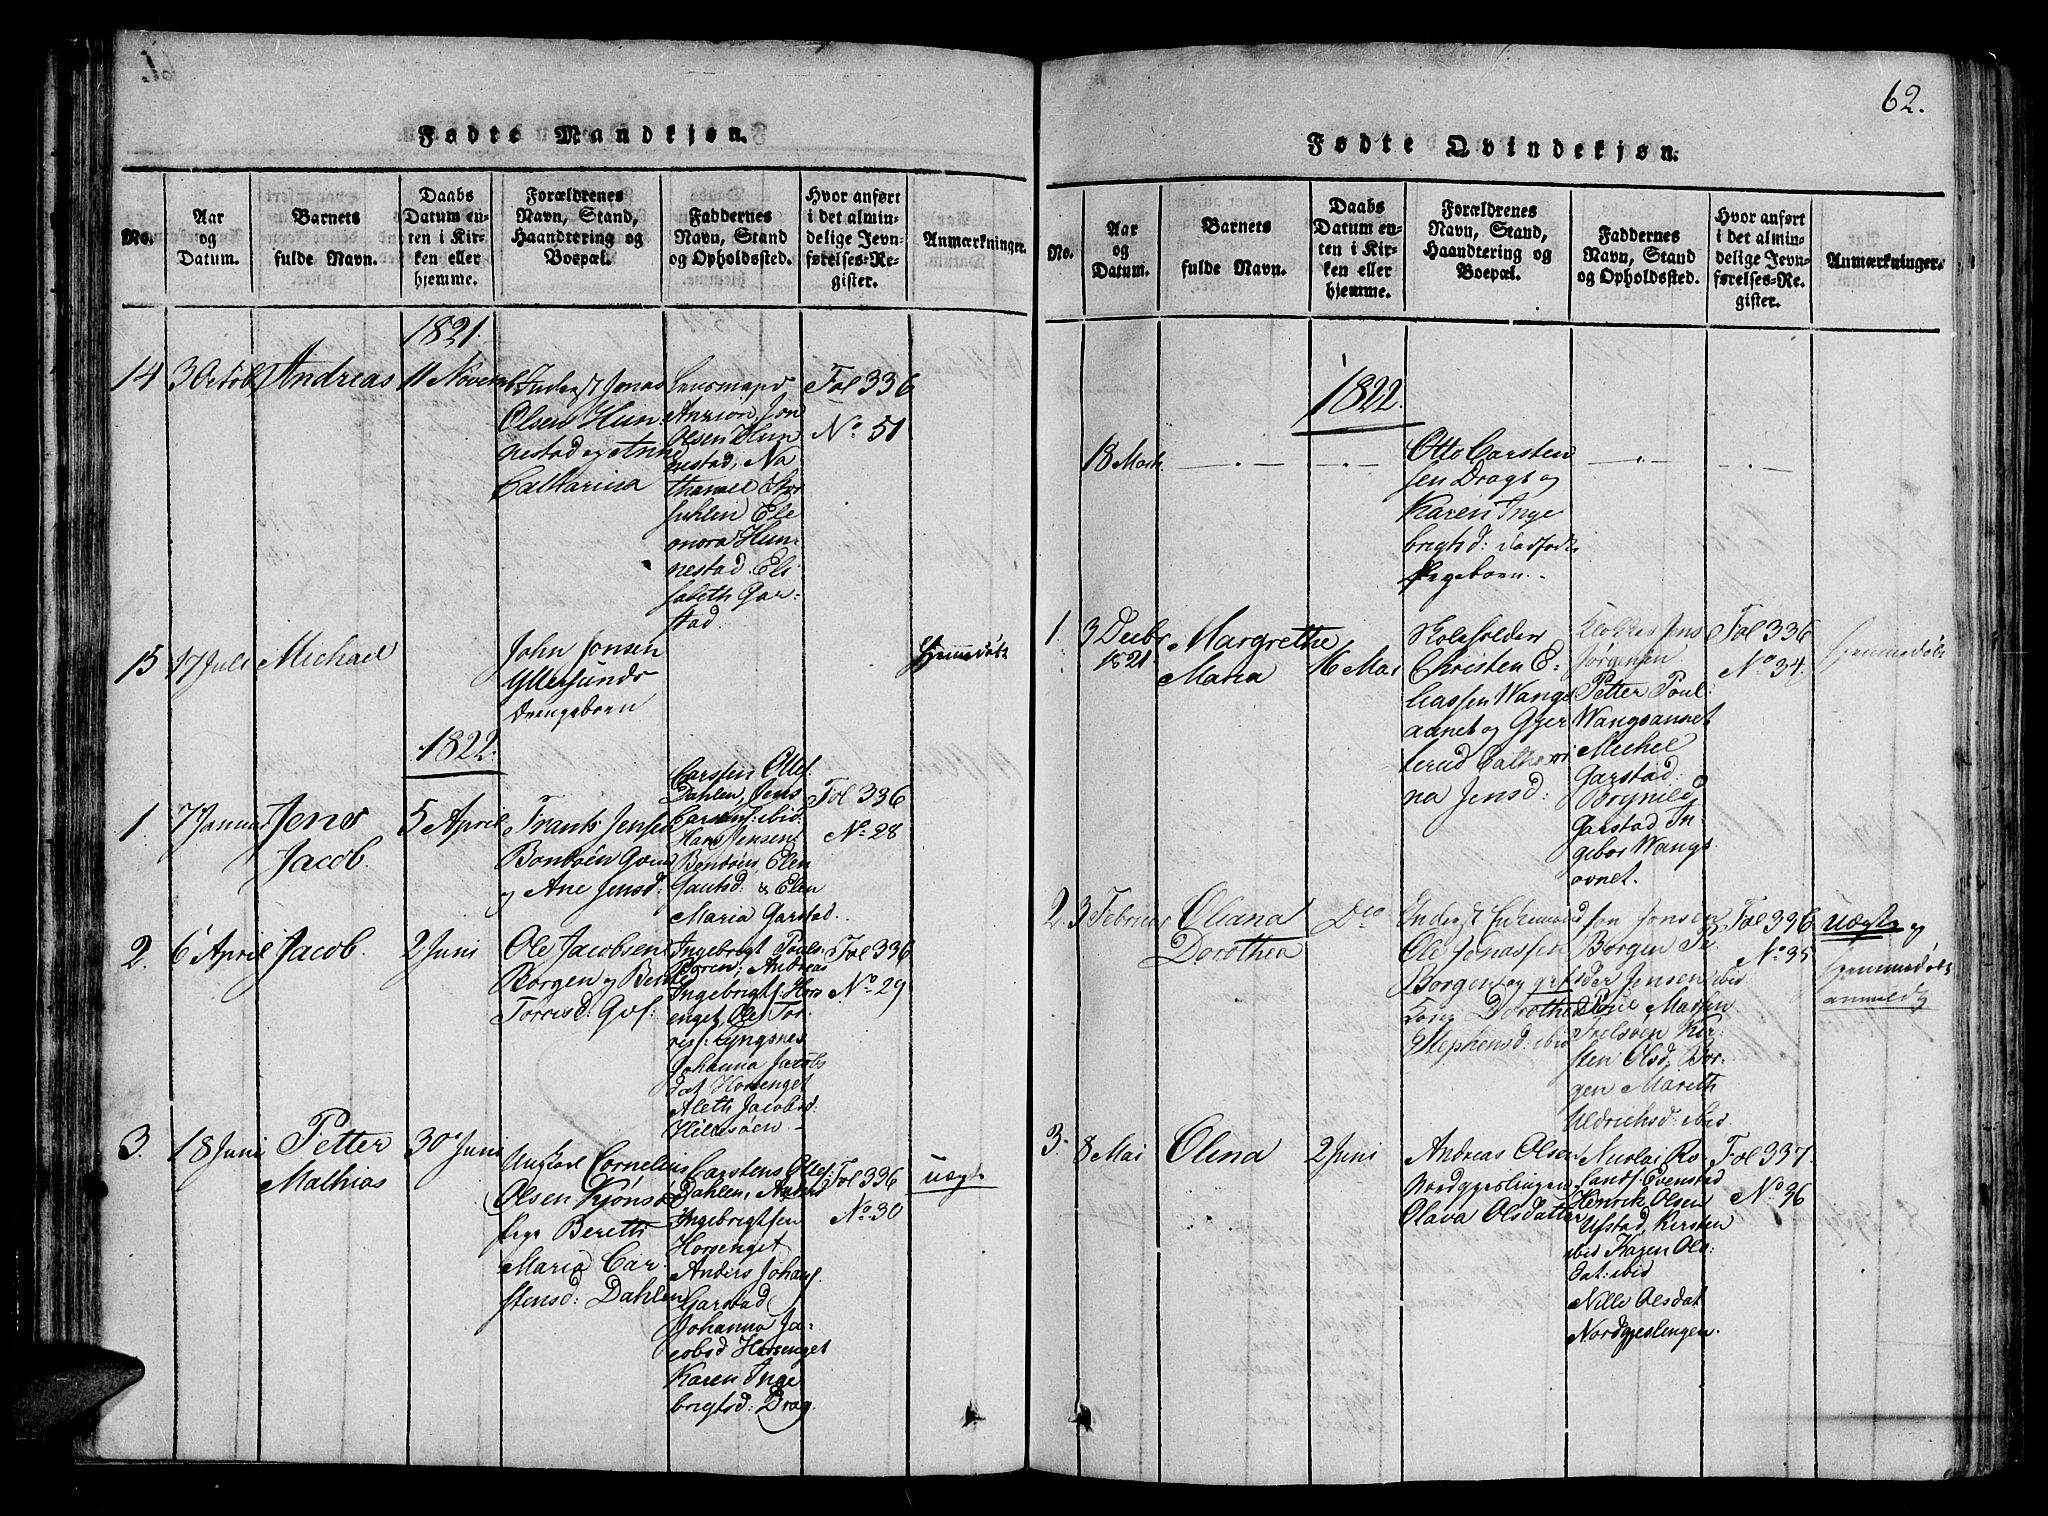 62.
Fødte Mandkjøn.
No.
Aar
og
Datum.
Barnets
fulde Navn.
Daabs
Datum en-
ten i Kir-
ken eller
hjemme.
Forældrenes
Navn, Stand,
Haandtering og
Boepæl.
Faddernes
Navn, Stand
og Opholdssted.
Hvor anført
i det almin-
delige Jevn-
førelses-Re-
gister.
Anmærkninger.
1821.
14
3 Octob
Andreas
11 Novemb
Inderst Jonas
Olsen Hun-
nestad og Anne
Catharina
Lensmand
Anzion, Jon
Olsen Hun
nestad, Na
thanael
Ele
onora Hun-
nestad. Eli
sabeth Gar-
stad.
Fol 336
No 51
15
17 Juli
Michael
John Jonsen
Yttersunds
Drengeboen
Hjemmedøbt
1822.
1.
7 Januar
Jens
Jacob.
5 April
Frants Jensen
Bondøen Gvs
og Ane Jensd:
Carsten Ottes:
Dahlen, Jens
Carsens: ibid.
Hans Jensen
Bondøen, Elen
& Elen
Maria Garstad.
Fol 336
No 28
2.
6 April
Jacob.
2 Juni
Ole Jacobsen
Borgen og Berit
Torrisd: Gvs:
Ingebrigt Pouls:
Boren; Andreas
Ingebrigts: Hors
enget, Ole Tor-
ris: Lyngsnes
Johanna Jacobs
dat Horsenget
Aleth Jacobsd:
Hildsøen
Fol 336
No 29
3.
18 Juni
Petter
Mathias
30 Juni
Ungkarl Cornelius
Olsen Kjønsø
Pige Bereth
Maria Car-
stensd: Dahlen
Carstens Ottes:
Dahlen, Anders
Ingebrigtsen
Horsenget
Anders Johans.
Garstad
Johanna Ja-
cobsd Horsenget
Karen Inge
brigtsd: Drag.
Fol 336
No 30
uægte
Fødte Qvindekjøn.
No.
Aar
og
Datum.
Barnets
fulde Navn.
Daabs
Datum en-
ten i Kir-
ken eller
hjemme.
Forældrenes
Navn, Stand,
Haandtering og
Boepæl.
Faddernes
Navn, Stand
og Opholdssted.
Hvor anført
i det almin-
delige Jevn-
førelses-Re-
gister.
Anmærkninger.
1822.
18 Mart.
Otto Carsten
sen Drags og
Karen Inge
brigtsd: dødfødt
Pigeboen.
1.
3 Decbr
1821.
Margrethe
Maria
16 Mai
Skoleholder
Christen E-
liassen Wangs
avnet og Gjer
terud Cathari
na Jensd:
Klokker Jens
Jørgensen
Petter Poul:
Wangsavnet
Michel
Garstad.
Brynild
Garstad In
gebor Wangs
avnet.
Fol 336
No 34.
Hjemmedøbt
2.
3 Februar
Oliana
Dorothea
Dto
Inderst Enkemand
Ole Jonassen
Borgen og grf
Kone Dorothea
Stephensd: ibid
Jon Jonsen
Borgen Pe
der Jensen ibid
Marsen
Trelsøen Kir-
sten Olsd: Bor-
gen Mareth
Uldrichsd: ibid
Fol 336
No 35
uægte og
hjemmedøbt
anmeldt
3.
8 Mai
Olina
2 Juni
Andreas Olsen
Nordgjeslingen
Olava Olsdatter
Nicolai Ro
sands: Evenstad
Henrik Olsen
Ufstad, Kirsten
ibid Karen Ols:
dat: ibid
Nille Olsdat
Nordgjeslingen.
Fol 337.
No 36